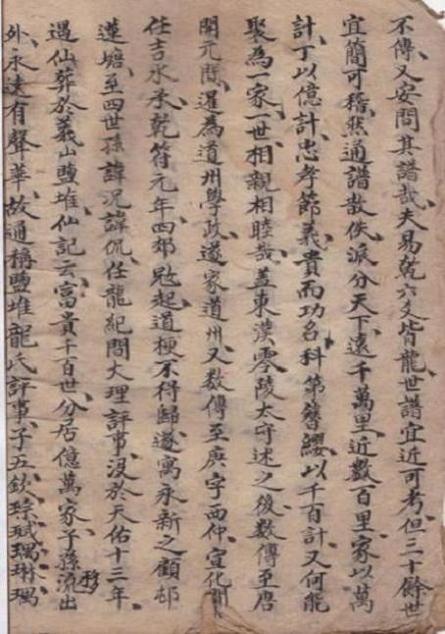 不傳又安問其譜哉夫易乾六爻皆龍世譜宜近可考但三十餘世
宜簡可稽然通譜散佚派分天下遠千萬里近數百里家以萬
計丁以億計忠孝節義貴而功名科第簪纓以千百計又何能
聚為一家一世相親相睦哉蓋東漢零陵太守述之後數傳至唐
開元間暹為道州學政遂家道州又數傳至庚字西仲宣化
任吉水丞乾符元年四郊兵起道梗不得歸遂寓永新之顧邨
蓮塘至四世孫諱況諱侃任龍紀間大理評事沒於天佑十三年
遇仙葬於義山鹽堆仙記云富貴千百世分居億萬家子孫流出
外永遠有聲華故通稱鹽堆龍氏評事子五欽琮珷瑀琳瑀